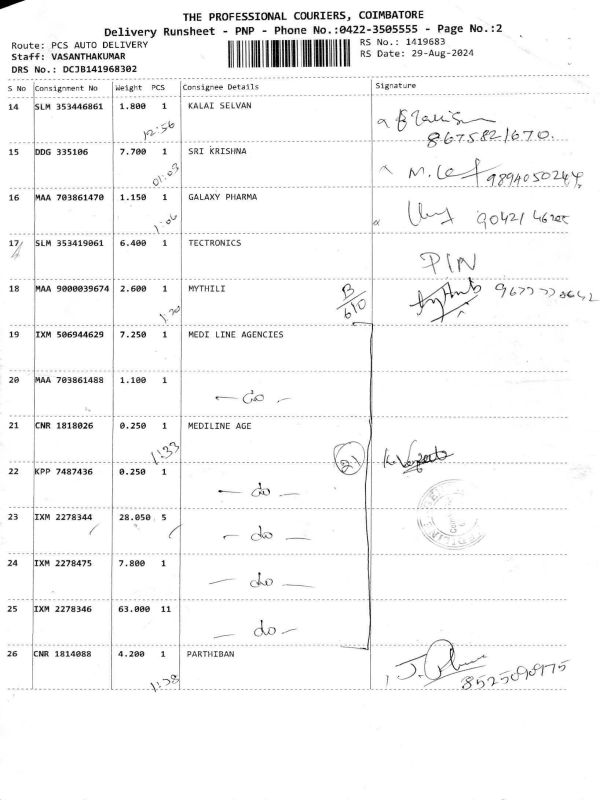 THE PROFESSIONAL COURIERS, COIMBATORE
Delivery Runsheet - PNP - Phone No.:0422-3505555 - Page No.:2
Route: PCS AUTO DELIVERY
RS No.: 1419683
Staff: VASANTHAKUMAR
RS Date: 29-Aug-2024
DRS No.: DCJB141968302
S No Consignment No Weight PCS Consignee Details Signature
14 SLM 353446861 1.800 1 KALAI SELVAN
12:56 8675821670.
15 DDG 335106 7.700 1 SRI KRISHNA
01:03 M.
16 MAA 703861470 1.150 1 GALAXY PHARMA
1:06
17 SLM 353419061 6.400 1 TECTRONICS
PIN
18 MAA 9000039674 2.600 1 MYTHILI B/610
1:20
19 IXM 506944629 7.250 1 MEDI LINE AGENCIES
20 MAA 703861488 1.100 1
— do —
21 CNR 1818026 0.250 1 MEDILINE AGE
1:33 21
22 KPP 7487436 0.250 1
— do —
23 IXM 2278344 28.050 5
— do —
24 IXM 2278475 7.800 1
— do —
25 IXM 2278346 63.000 11
— do —
26 CNR 1814088 4.200 1 PARTHIBAN
1:38 J. 8525090975